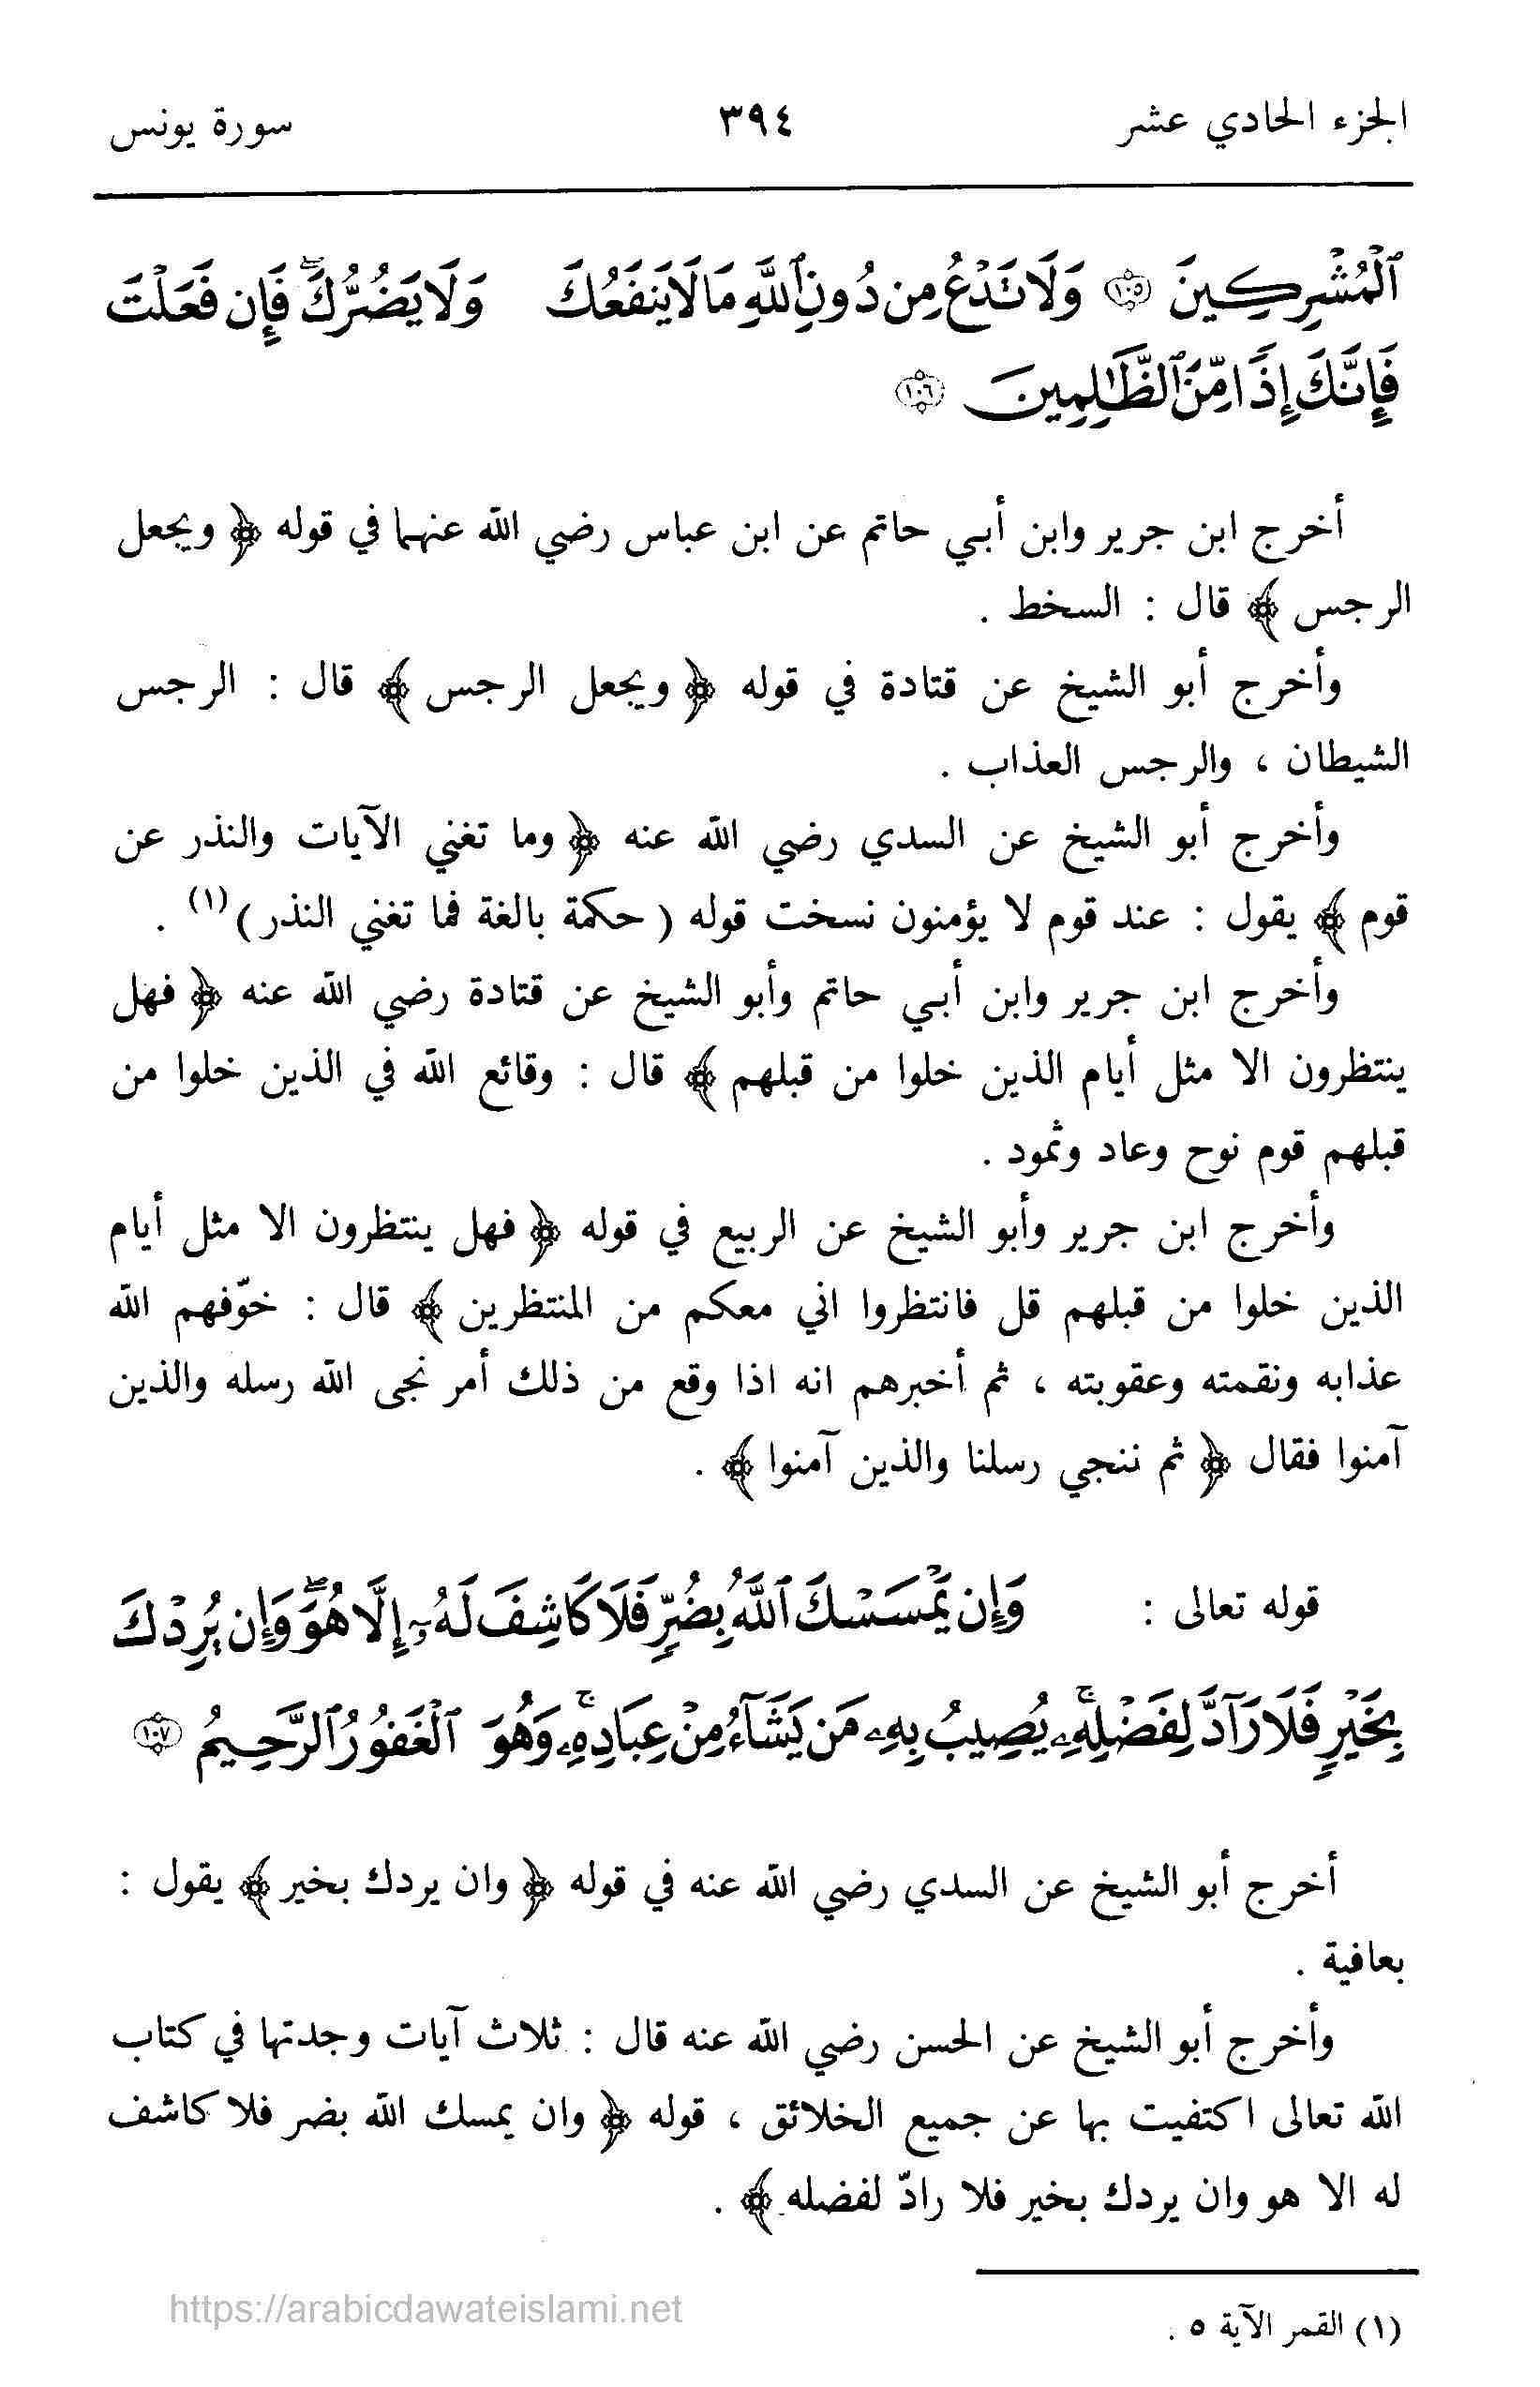 الجزء الحادي عشر ٣٩٤ سورة يونس
ٱلْمُشْرِكِينَ ١٠٥ وَلَا تَدْعُ مِن دُونِ ٱللَّهِ مَا لَا يَنفَعُكَ وَلَا يَضُرُّكَ ۖ فَإِن فَعَلْتَ
فَإِنَّكَ إِذًا مِّنَ ٱلظَّٰلِمِينَ ١٠٦
أخرج ابن جرير وابن أبي حاتم عن ابن عباس رضي الله عنهما في قوله ﴿ ويجعل
الرجس ﴾ قال : السخط .
وأخرج أبو الشيخ عن قتادة في قوله ﴿ ويجعل الرجس ﴾ قال : الرجس
الشيطان ، والرجس العذاب .
وأخرج أبو الشيخ عن السدي رضي الله عنه ﴿ وما تغني الآيات والنذر عن
قوم ﴾ يقول : عند قوم لا يؤمنون نسخت قوله ( حكمة بالغة فما تغني النذر )(١) .
وأخرج ابن جرير وابن أبي حاتم وأبو الشيخ عن قتادة رضي الله عنه ﴿ فهل
ينتظرون الا مثل أيام الذين خلوا من قبلهم ﴾ قال : وقائع الله في الذين خلوا من
قبلهم قوم نوح وعاد وثمود .
وأخرج ابن جرير وأبو الشيخ عن الربيع في قوله ﴿ فهل ينتظرون الا مثل أيام
الذين خلوا من قبلهم قل فانتظروا اني معكم من المنتظرين ﴾ قال : خوّفهم الله
عذابه ونقمته وعقوبته ، ثم أخبرهم انه اذا وقع من ذلك أمر نجى الله رسله والذين
آمنوا فقال ﴿ ثم ننجي رسلنا والذين آمنوا ﴾ .
قوله تعالى : وَإِن يَمْسَسْكَ ٱللَّهُ بِضُرٍّ فَلَا كَاشِفَ لَهُۥٓ إِلَّا هُوَ ۖ وَإِن يُرِدْكَ
بِخَيْرٍ فَلَا رَآدَّ لِفَضْلِهِۦ ۚ يُصِيبُ بِهِۦ مَن يَشَآءُ مِنْ عِبَادِهِۦ ۚ وَهُوَ ٱلْغَفُورُ ٱلرَّحِيمُ ١٠٧
أخرج أبو الشيخ عن السدي رضي الله عنه في قوله ﴿ وان يردك بخير ﴾ يقول :
بعافية .
وأخرج أبو الشيخ عن الحسن رضي الله عنه قال : ثلاث آيات وجدتها في كتاب
الله تعالى اكتفيت بها عن جميع الخلائق ، قوله ﴿ وان يمسك الله بضر فلا كاشف
له الا هو وان يردك بخير فلا رادّ لفضله ﴾ .
(١) القمر الآية ٥ .
https://arabicdawateislami.net